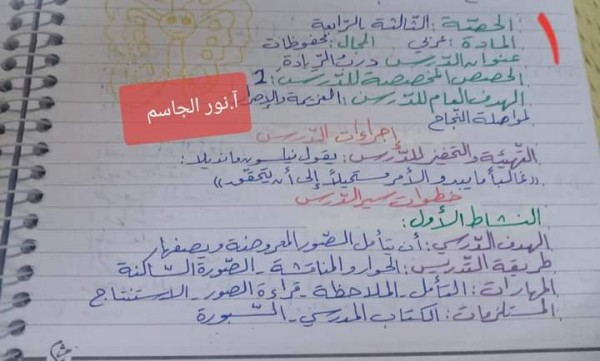 ١
الحصة: الثالثة بالرابعة
المادة: عربي المجال: محفوظات
عنوان الدرس: درب الريادة
الحصص المخصصة للدرس: 1
الهدف العام للدرس: العزيمة والإصرار
لمواصلة النجاح
آ.نور الجاسم
إجراءات الدرس
التهيئة والتحفيز للدرس: يقول نيلسون مانديلا:
«غالباً ما يبدو الأمر مستحيلاً إلى أن يتحقق»
خطوات سير الدرس
النشاط الأول:
الهدف الدرسي: أن يتأمل الصور المعروضة ويصفها
طريقة التدريس: الحوار والمناقشة - الصورة الساكنة
المهارات: التأمل - الملاحظة - قراءة الصور - الاستنتاج
المستلزمات: الكتاب المدرسي - السبورة